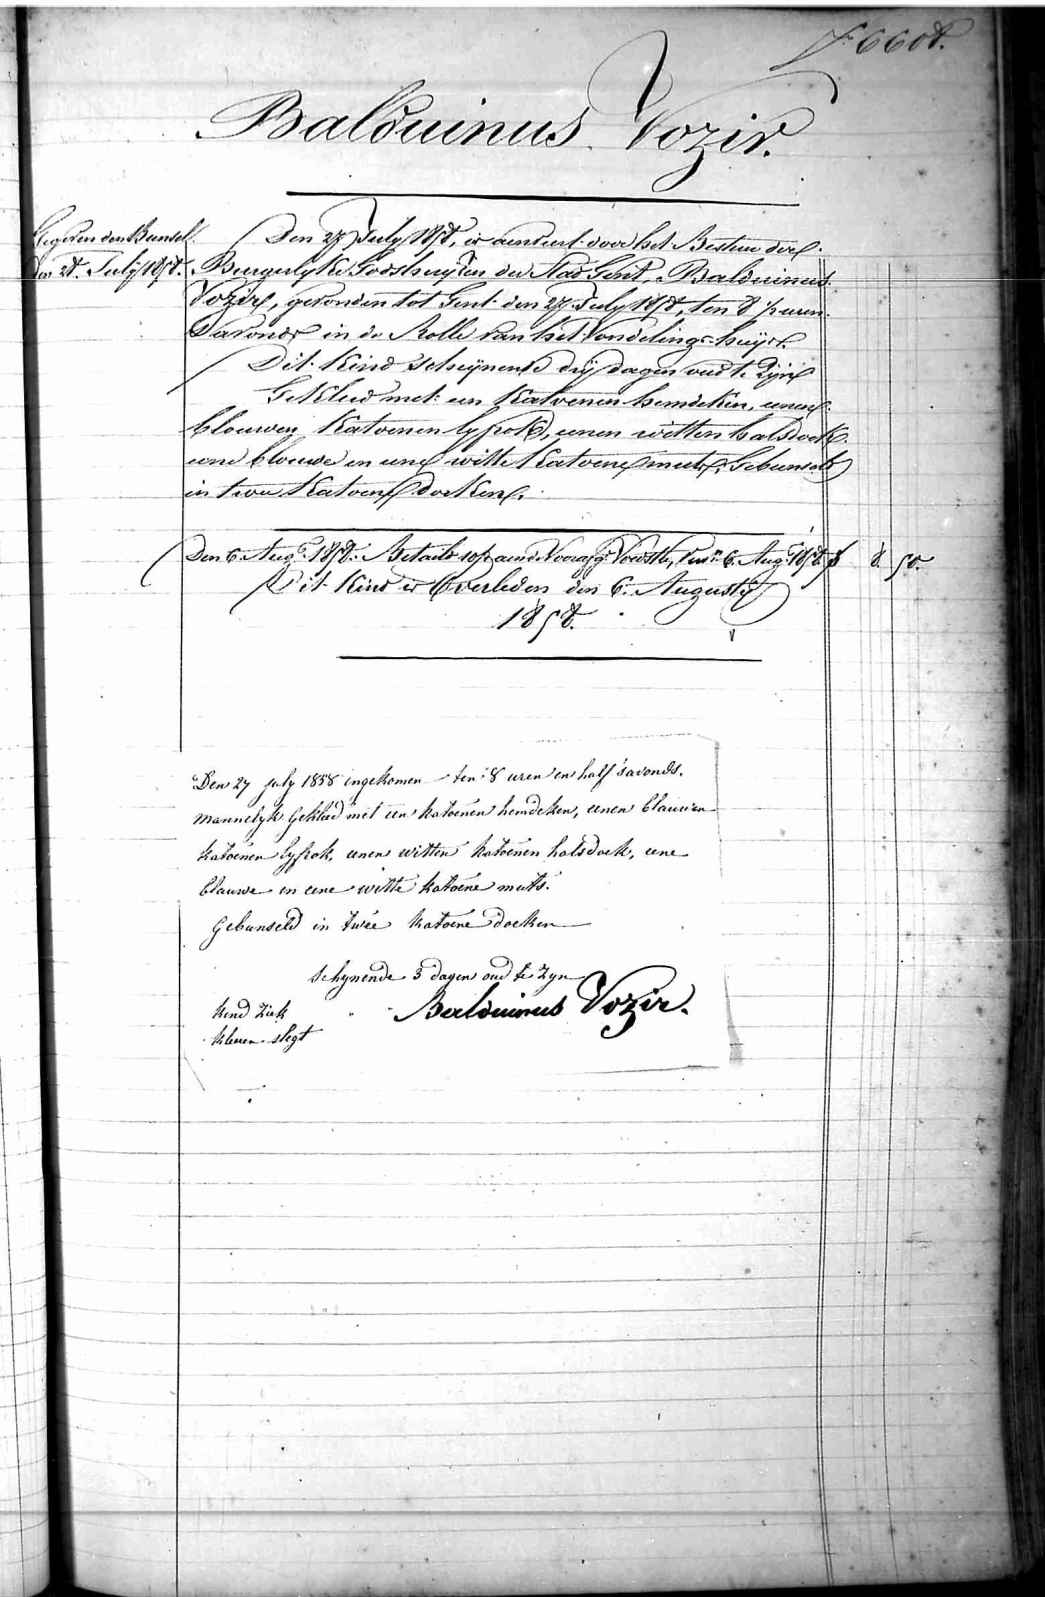 F. 6608.
Balduinus Vozir.
Gegeven den Bunsel.
den 28. July 1858.
Den 27 July 1858, is aenveert door het Bestuer der
Burgerlyke Godshuyzen der Stad Gent, Balduinus
Vozir, gevonden tot Gent den 27 July 1858, ten 8 1/2 uren
Savonds in de Rolle van het Vondelings-huys.
Dit Kind schynende dry dagen oud te Zyn
Gekleed met een Katoenen hemdeken, eenen
blauwen Katoenen lyfrok, eenen witten halsdoek.
eene blauwe en eene witte Katoene muts, Gebunseld
in twee Katoene doeken.
Den 6. Augt. 1858. Betaeld op 6. Augt. 1858 8 50
Dit Kind is Overleden den 6. Augusty
1858.
Den 27 july 1858 ingekomen ten 8 uren en half s'avonds.
mannelyk Gekleed met een katoenen hemdeken, eenen blauwen
katoenen lyfrok, eenen witten katoenen halsdoek, eene
blauwe en eene witte katoene muts.
Gebunseld in twee katoene doeken
schynende 3 dagen oud te zyn
kind ziek Balduinus Vozir.
kleeren slegt